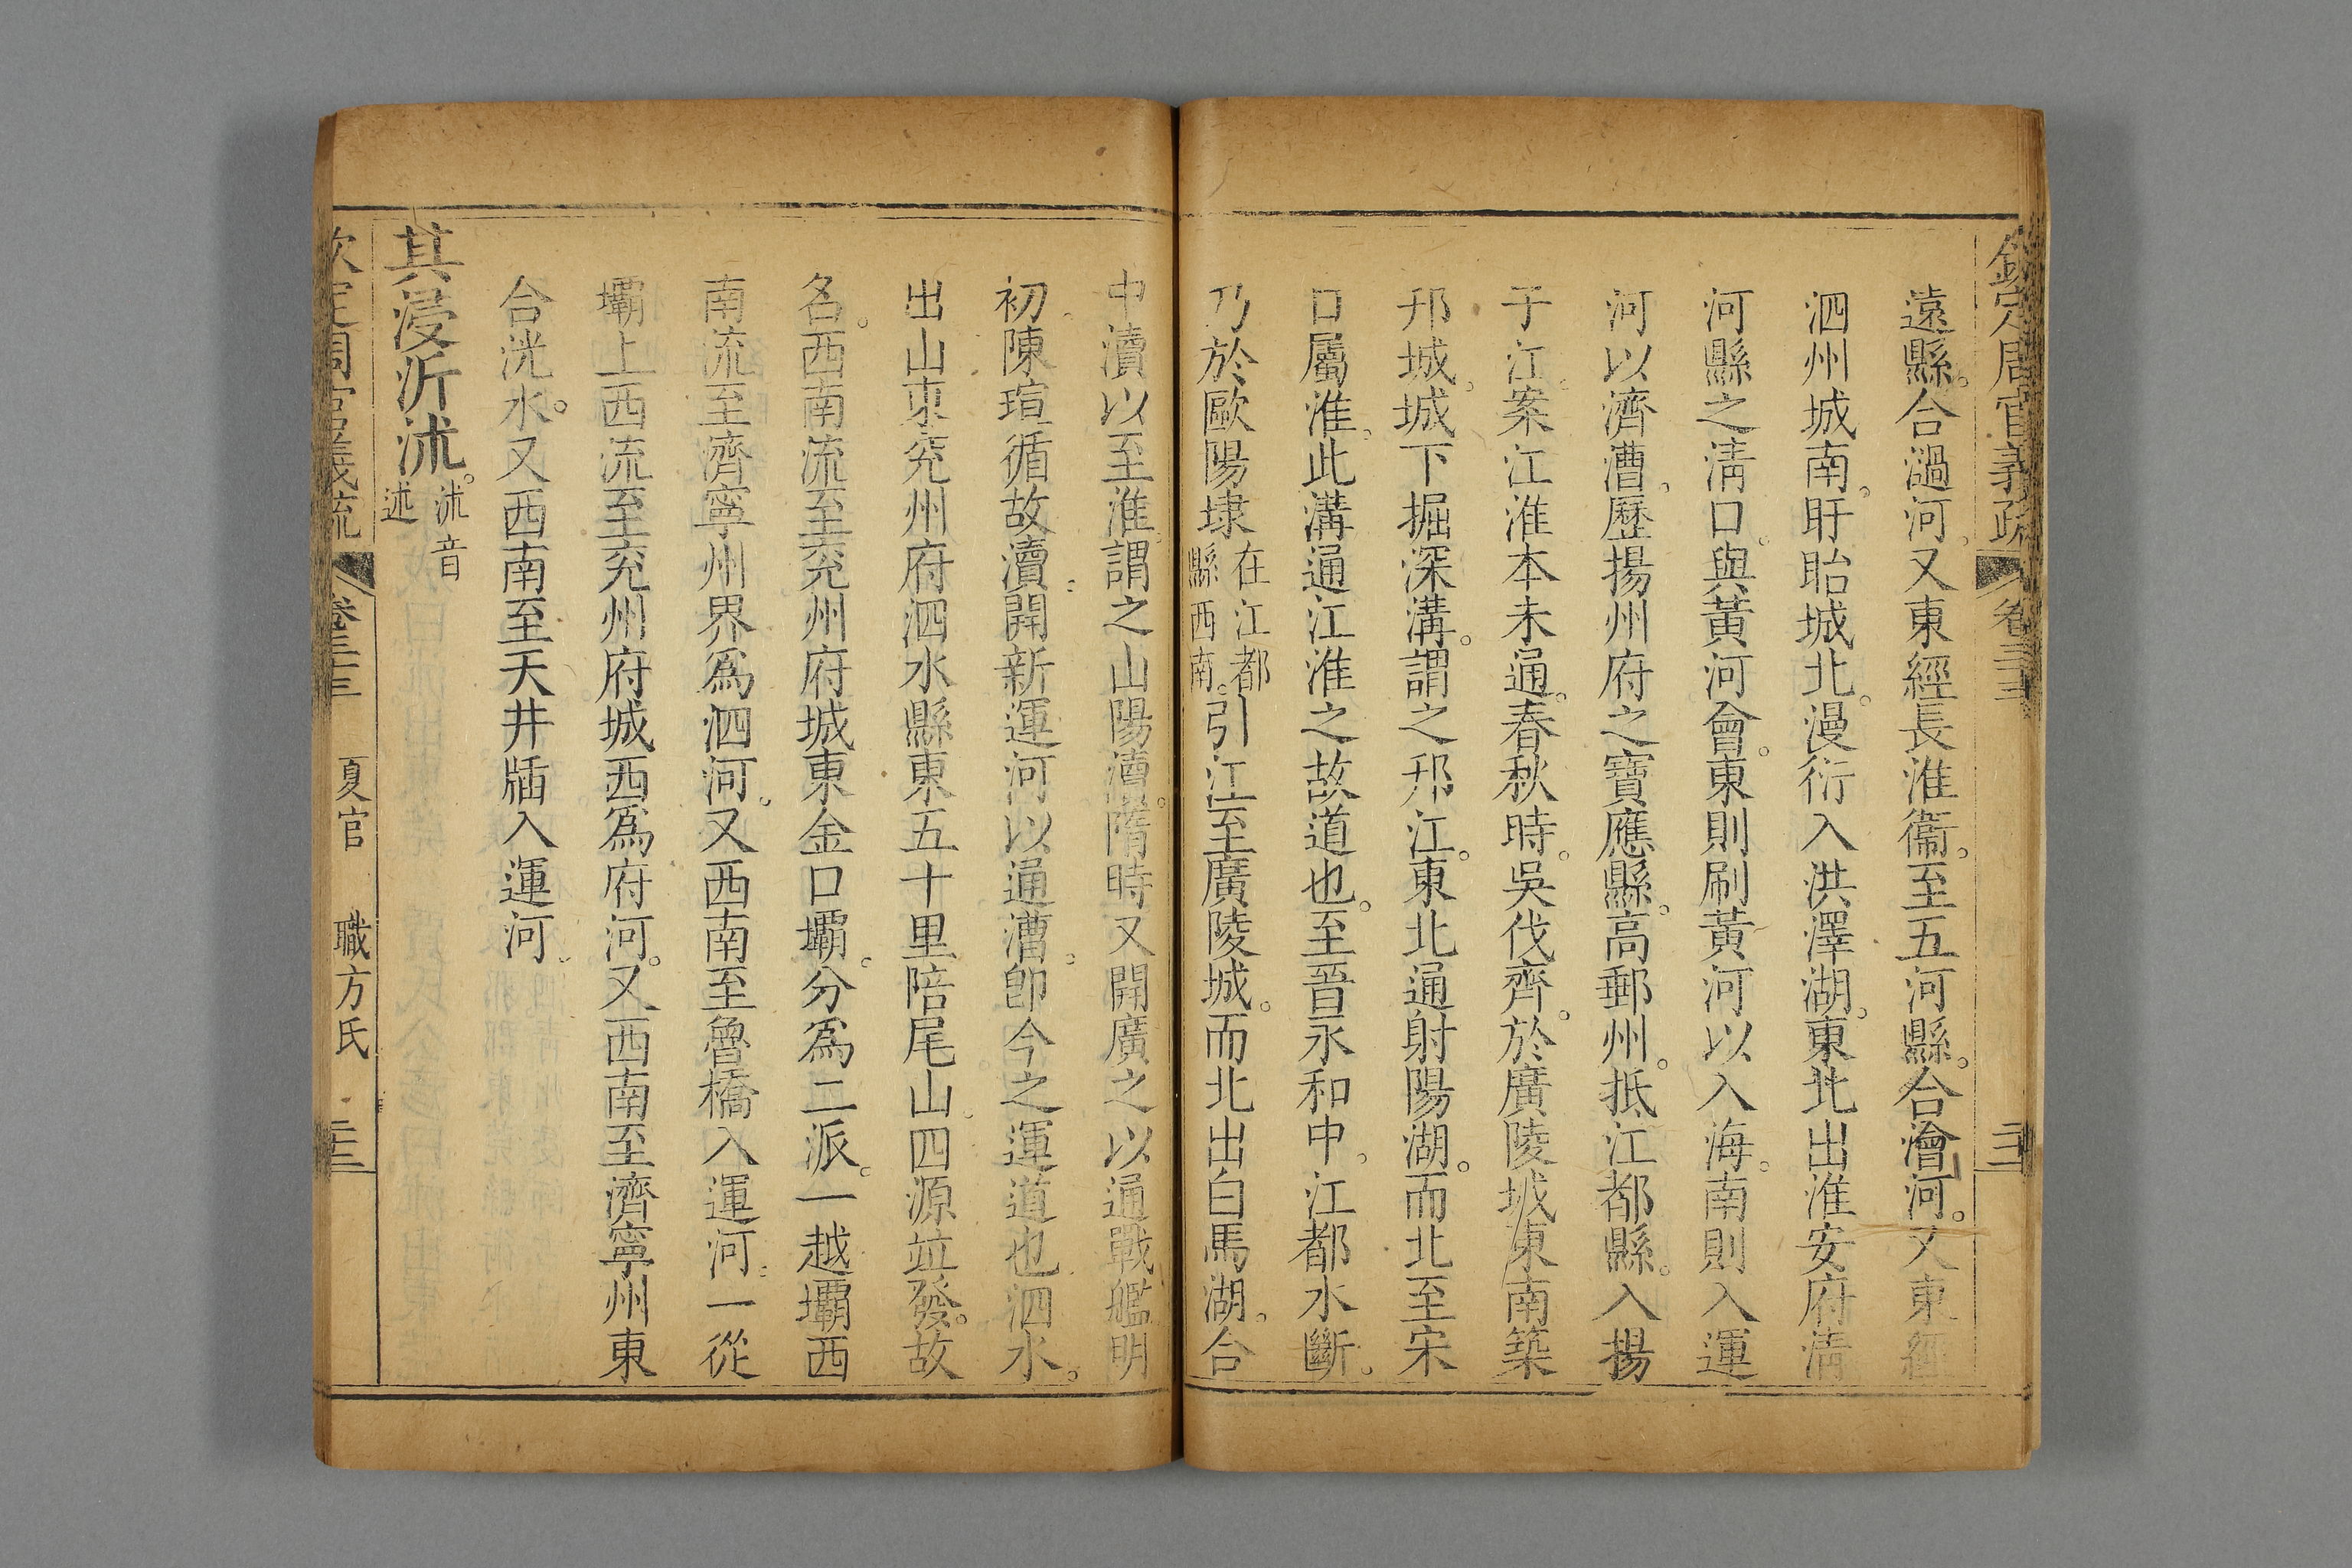 欽定周官義疏 卷三十三
遠縣。合濄河。又東經長淮衞。至五河縣。合澮河。又東經
泗州城南。盱眙城北。漫衍入洪澤湖。東北出淮安府淸
河縣之淸口。與黃河會。東則刷黃河以入海。南則入運
河以濟漕。歷揚州府之寶應縣。高郵州。抵江都縣。入揚
于江。案江淮本未通。春秋時。吳伐齊。於廣陵城東南築
邗城。城下掘深溝。謂之邗江。東北通射陽湖。而北至宋
口屬淮。此溝通江淮之故道也。至晉永和中。江都水斷。
乃於歐陽埭在江都縣西南。引江至廣陵城。而北出白馬湖。合
中瀆以至淮。謂之山陽瀆。隋時又開廣之以通戰艦明
初。陳瑄循故瀆。開新運河以通漕。卽今之運道也泗水。
出山東兖州府泗水縣東五十里陪尾山。四源竝發。故
名。西南流至兖州府城東金口壩。分爲二派。一越壩西
南流至濟寧州界爲泗河。又西南至魯橋入運河。一從
壩上西流至兖州府城西爲府河。又西南至濟寧州東
合洸水。又西南至天井牐入運河。
其浸沂沭。沭音述
欽定周官義疏 卷三十三 夏官 職方氏